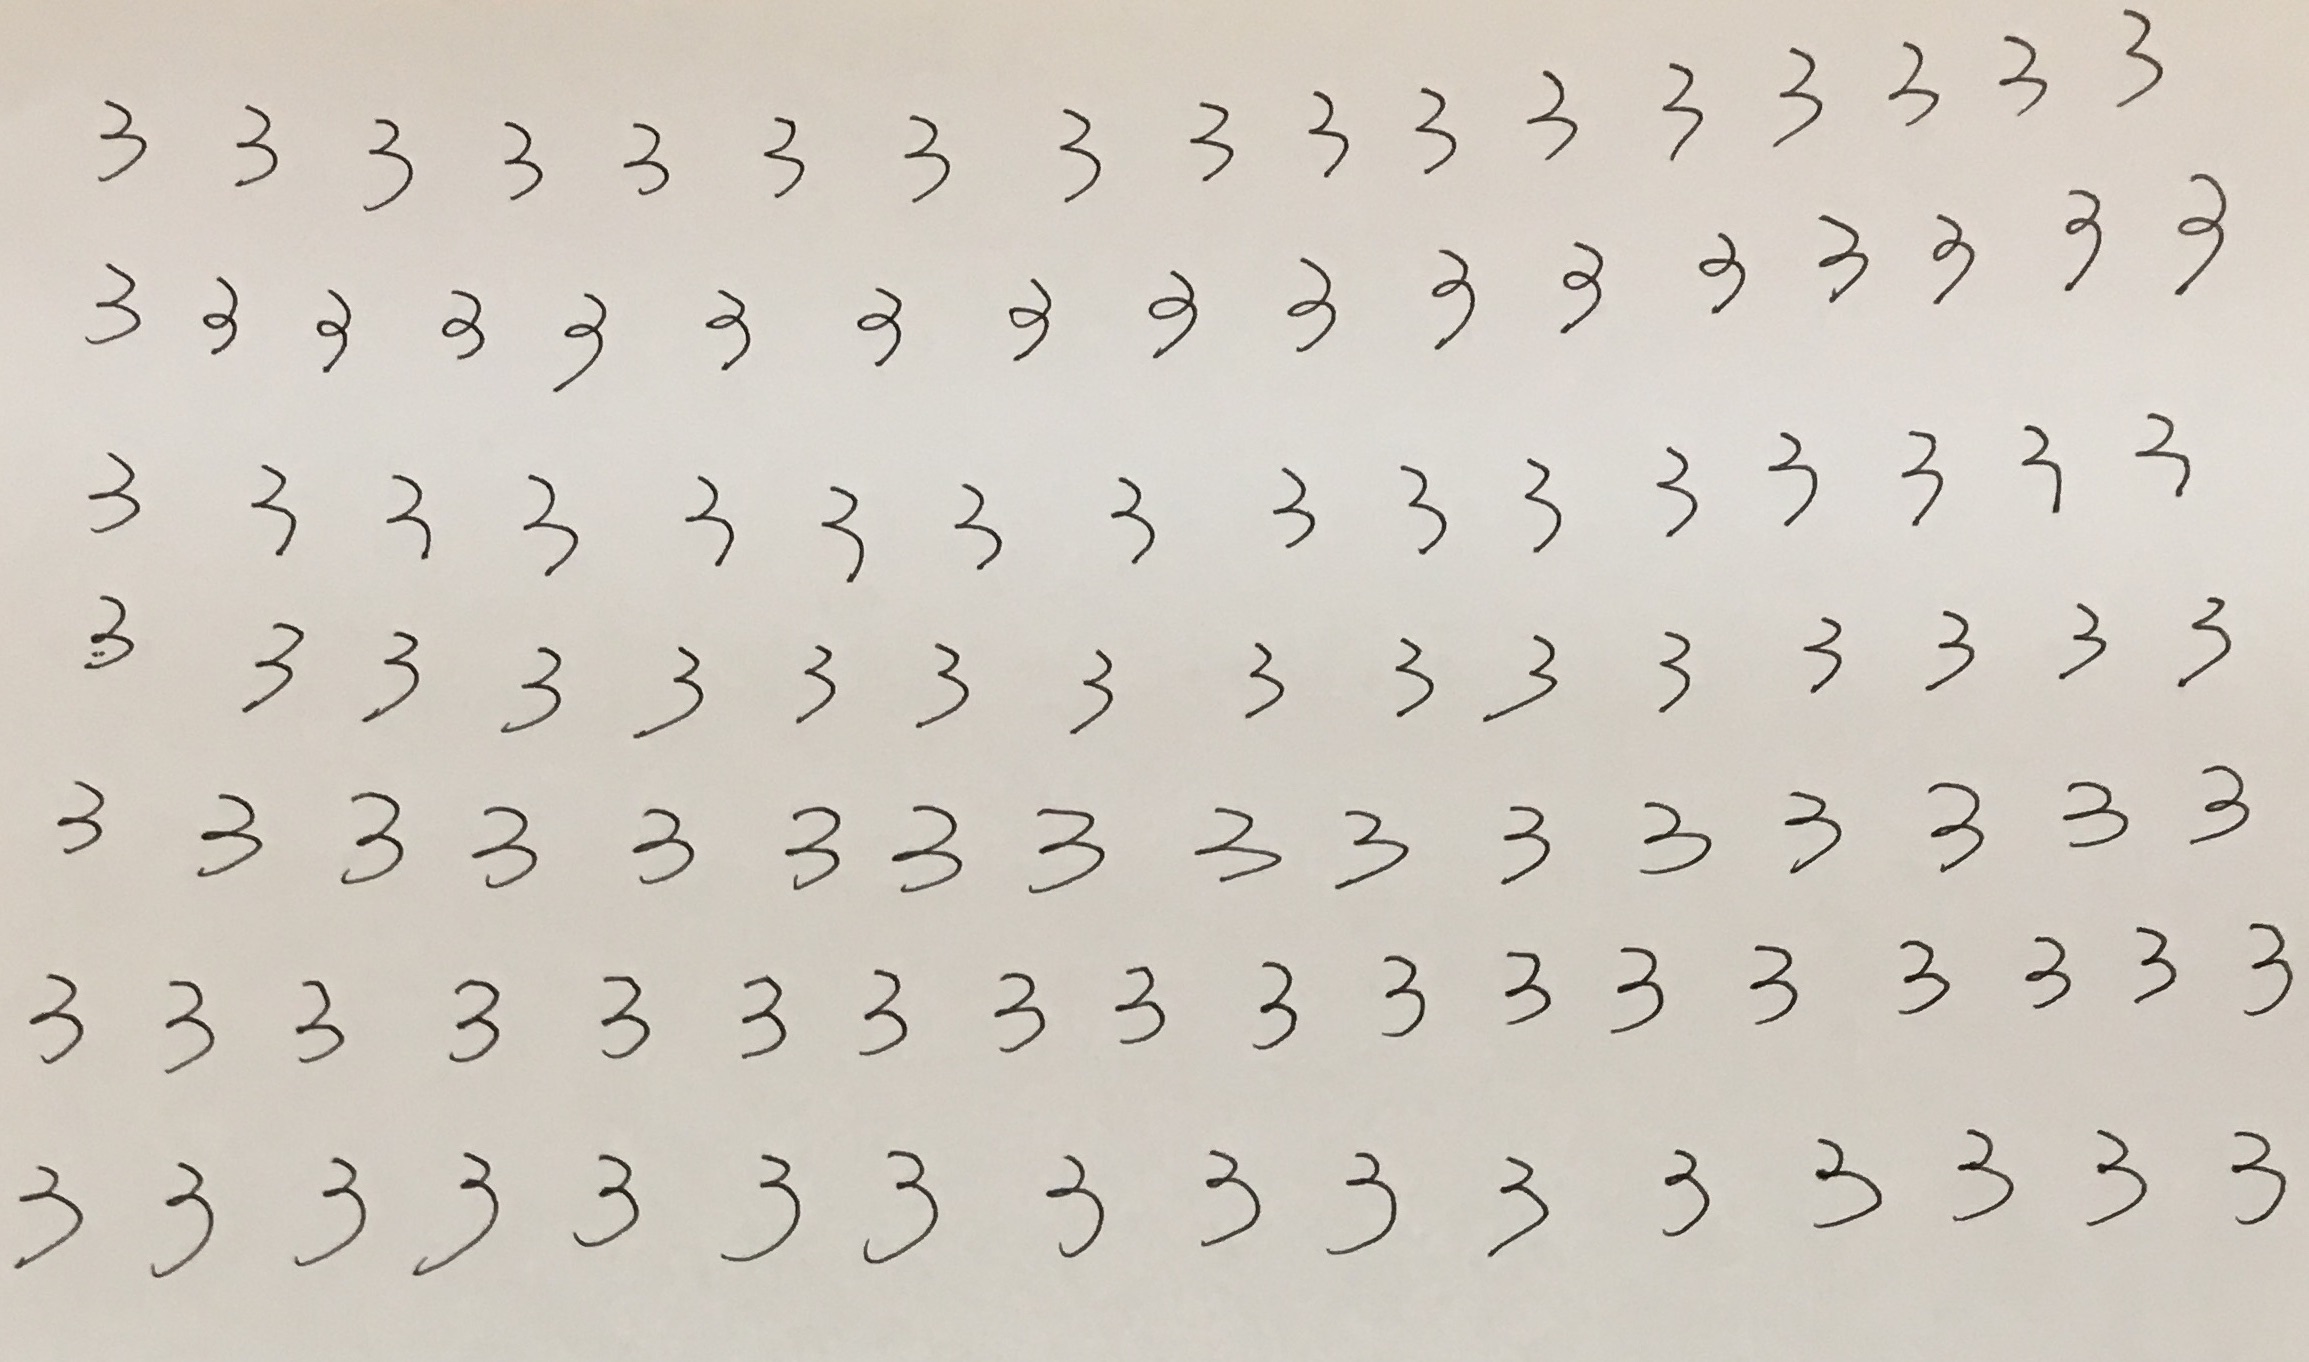 3 3 3 3 3 3 3 3 3 3 3 3 3 3 3 3 3
3 3 3 3 3 3 3 3 3 3 3 3 3 3 3 3 3
3 3 3 3 3 3 3 3 3 3 3 3 3 3 3 3
3 3 3 3 3 3 3 3 3 3 3 3 3 3 3 3
3 3 3 3 3 3 3 3 3 3 3 3 3 3 3 3
3 3 3 3 3 3 3 3 3 3 3 3 3 3 3 3 3 3
3 3 3 3 3 3 3 3 3 3 3 3 3 3 3 3